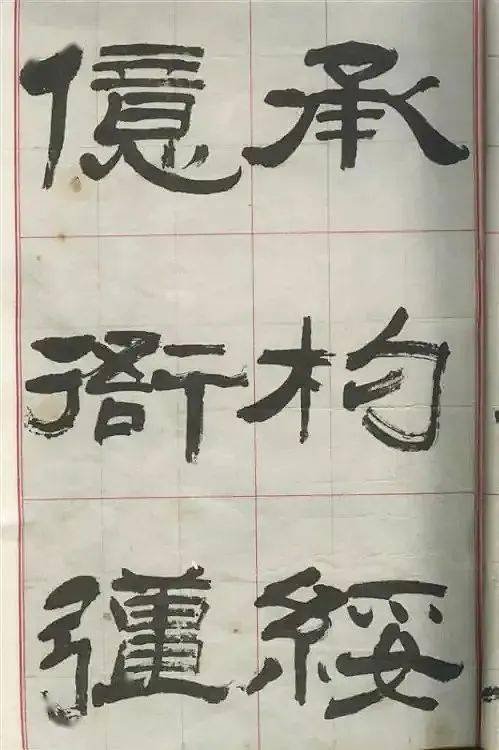 承杓綏
億衙彊